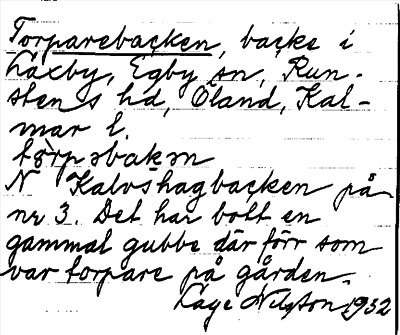 Torparebacken, backe i
Laxby, Egby sn, Run-
stens hd, Öland, Kal-
mar l.
N Kalvshagbacken på
nr 3. Det har bott en
gammal gubbe där förr som
var torpare på gården.
Nilsson 1932